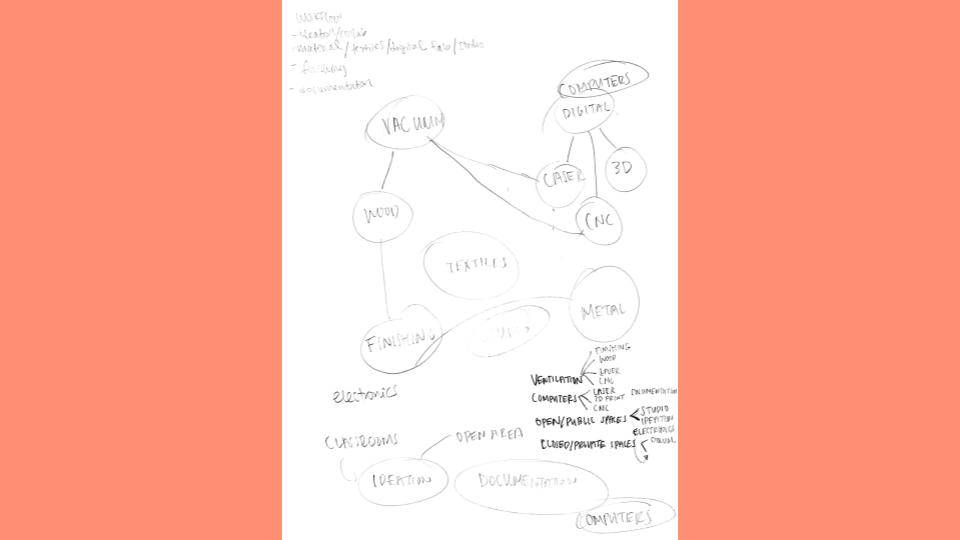 WORKFLOW
- ideation/collab
- material/textiles/digital fab/studio
- finishing
- documentation
COMPUTERS
DIGITAL
VACUUM
LASER
3D
WOOD
CNC
TEXTILES
METAL
FINISHING
STUDIO
electronics
VENTILATION
FINISHING
WOOD
LASER
CNC
COMPUTERS
LASER
3D PRINT
CNC
DOCUMENTATION
OPEN/PUBLIC SPACES
STUDIO
IDEATION
ELECTRONICS
CLOSED/PRIVATE SPACES
CLASSROOMS
OPEN AREA
IDEATION
DOCUMENTATION
COMPUTERS